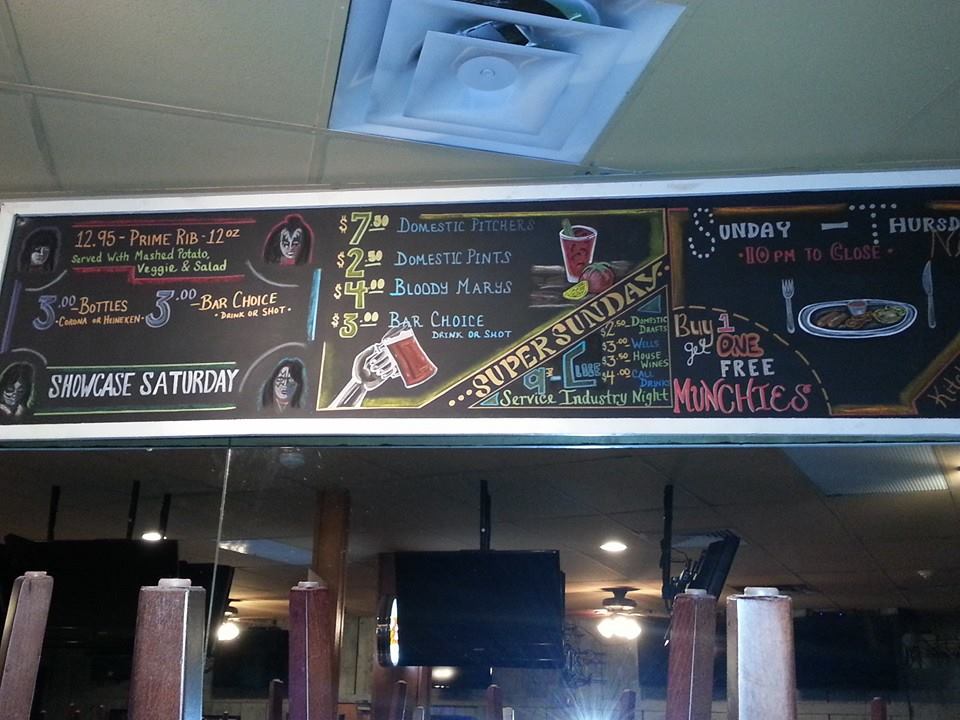 12.95 - PRIME RIB - 12oz
SERVED WITH MASHED POTATO,
VEGGIE & SALAD
3.00 - BOTTLES
• CORONA OR HEINEKEN •
3.00 - BAR CHOICE
• DRINK OR SHOT •
SHOWCASE SATURDAY
$7.50 DOMESTIC PITCHERS
$2.50 DOMESTIC PINTS
$4.00 BLOODY MARYS
$3.00 BAR CHOICE
DRINK OR SHOT
•••SUPER SUNDAY•••
9 - CLOSE
$2.50 DOMESTIC DRAFTS
$3.00 WELLS
$3.50 HOUSE WINES
$4.00 CALL DRINKS
Service Industry Night
SUNDAY - THURSD
• 10 PM TO CLOSE •
Buy 1
get ONE
FREE
MUNCHIES